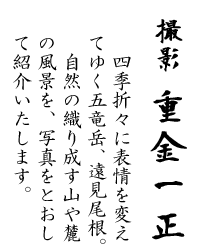 撮影 重金一正
四季折々に表情を変え
てゆく五竜岳、遠見尾根。
自然の織り成す山や麓
の風景を、写真をとおし
て紹介いたします。